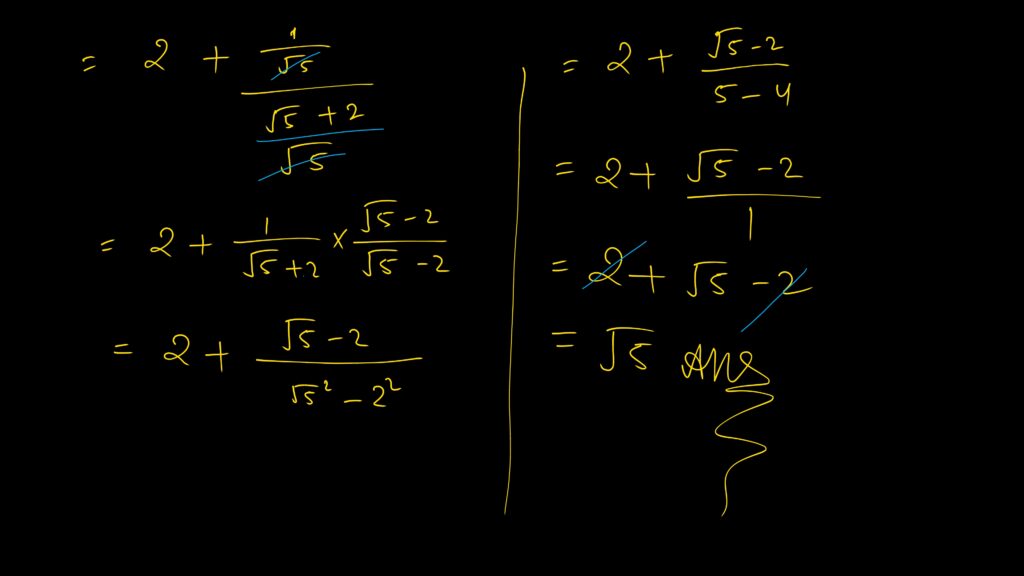 = 2 + (1/√5)/((√5 + 2)/√5)
= 2 + 1/(√5 + 2) × (√5 - 2)/(√5 - 2)
= 2 + (√5 - 2)/(√5² - 2²)
= 2 + (√5 - 2)/(5 - 4)
= 2 + (√5 - 2)/1
= 2 + √5 - 2
= √5 Ans